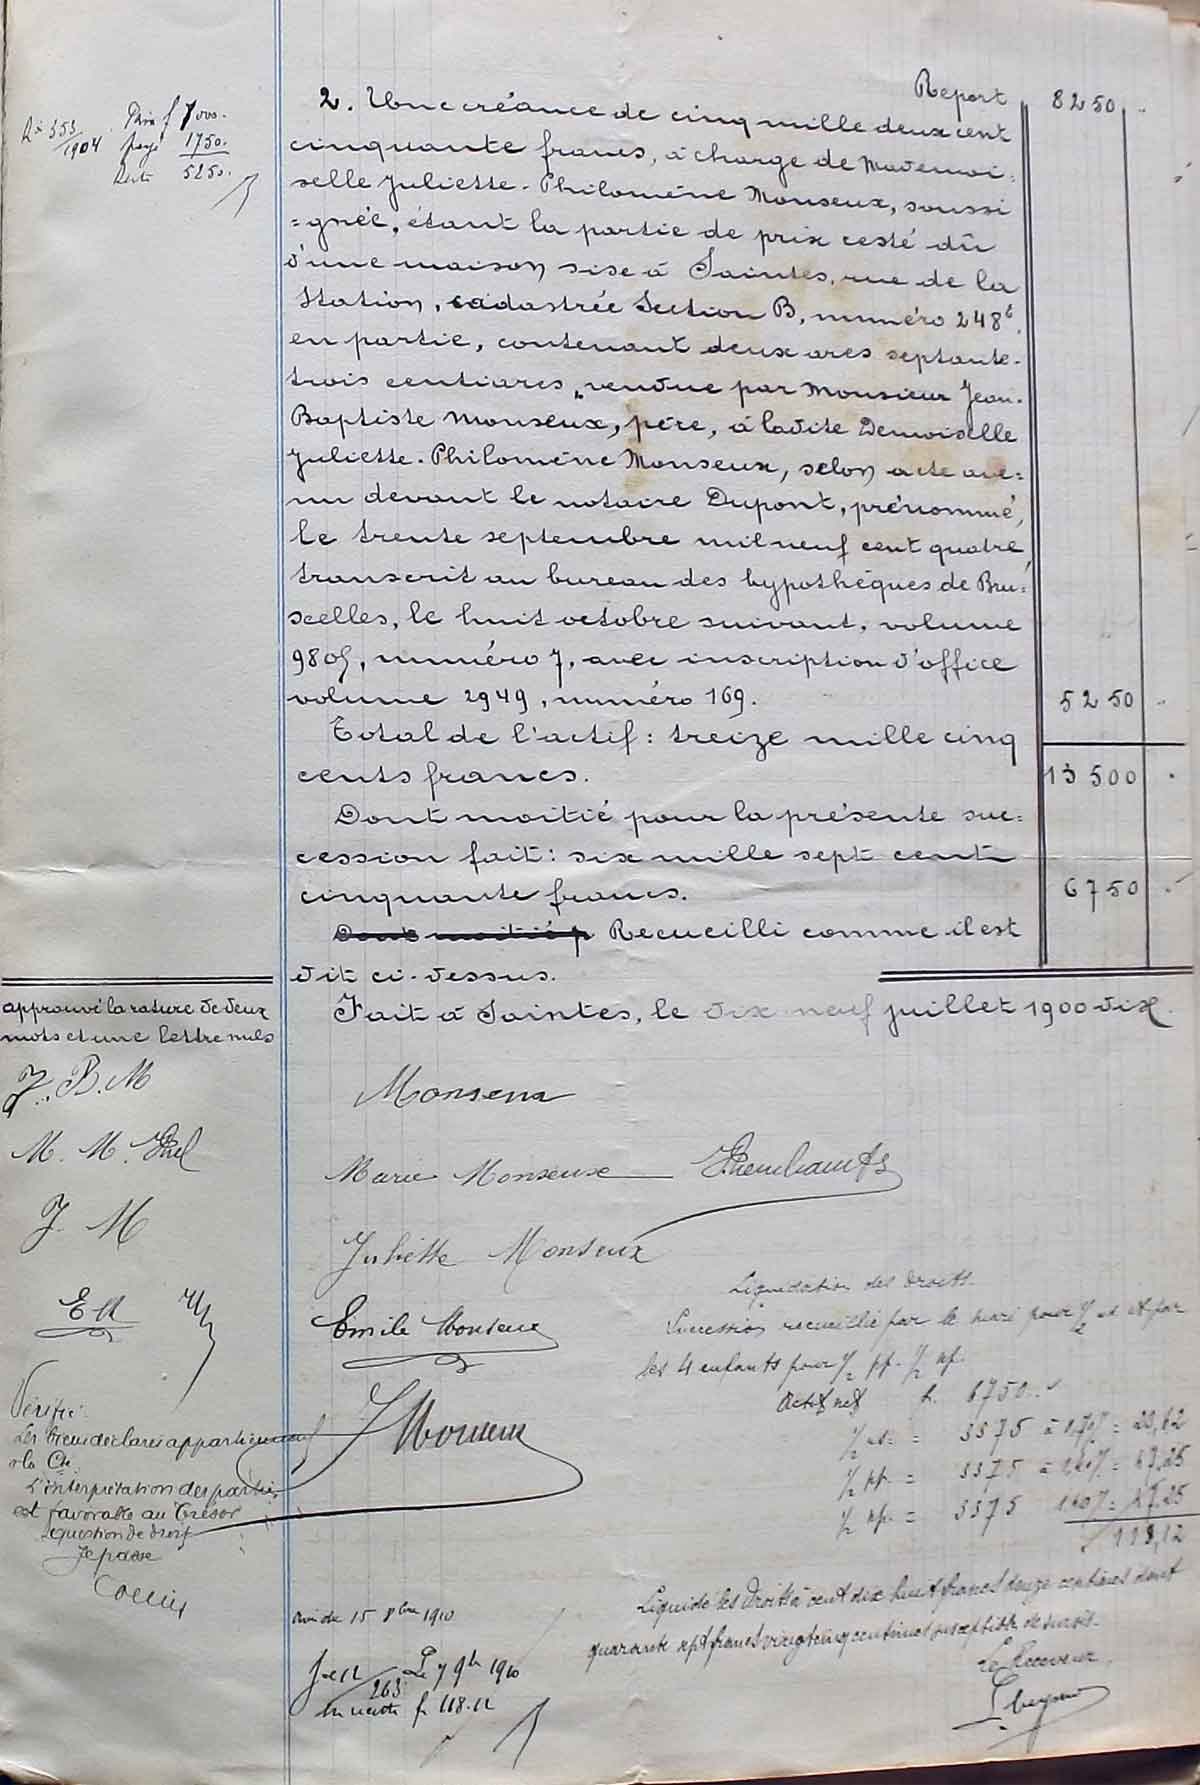 Report 8250
2. Une créance de cinq mille deux cent
cinquante francs, à charge de Mademoi=
selle Juliette-Philomène Monseux, soussi
=gnée, étant la partie de prix resté dû
d'une maison sise à Saintes, rue de la
Station, cadastrée Section B, numéro 248
en partie, contenant deux ares septante-
trois centiares, vendue par Monsieur Jean-
Baptiste Monseux, père, à ladite Demoiselle
Juliette-Philomène Monseux, selon acte ave=
nu devant le notaire Dupont, prénommé,
le trente septembre mil neuf cent quatre
transcrit au bureau des hypothèques de Bru=
xelles, le huit octobre suivant, volume
9805, numéro 7, avec inscription d'office
volume 2949, numéro 169. 5250
Total de l'actif: treize mille cinq
cents francs. 13500
Dont moitié pour la présente suc=
cession fait: six mille sept cent
cinquante francs. 6750
Dont moitié p Recueilli comme il est
dit ci-dessus.
Fait à Saintes, le dix neuf juillet 1900 dix.
353
1904
Prix f 7000.
payé 1750.
Reste 5250.
approuvé la rature de deux
mots et une lettre nuls
J. B. M
M. M.
J. M
E M
Monseux
Marie Monseux
Juliette Monseux
Emile Monseux
J Monseux
Vérifié
Les biens déclarés appartiennent
à la
L'interprétation des parties
est favorable au Trésor
question de droit
Je passe
Liquidation des droits
Succession recueillie par le mari pour 1/2 us et par
les 4 enfants pour 1/2 pp. 1/2 np.
Actif net f. 6750
1/2 us = 3375 à =
1/2 pp. = 3375 à 1.40% = 47,25
1/2 np. = 3375 1.40% = 47,25
118,12
Liquidé les droits à cent dix huit francs douze centimes dont
quarante sept francs vingt cinq centimes susceptible de sursis.
Le Receveur
du 15 1910
Le 7 9bre 1910
263
f. 118.12